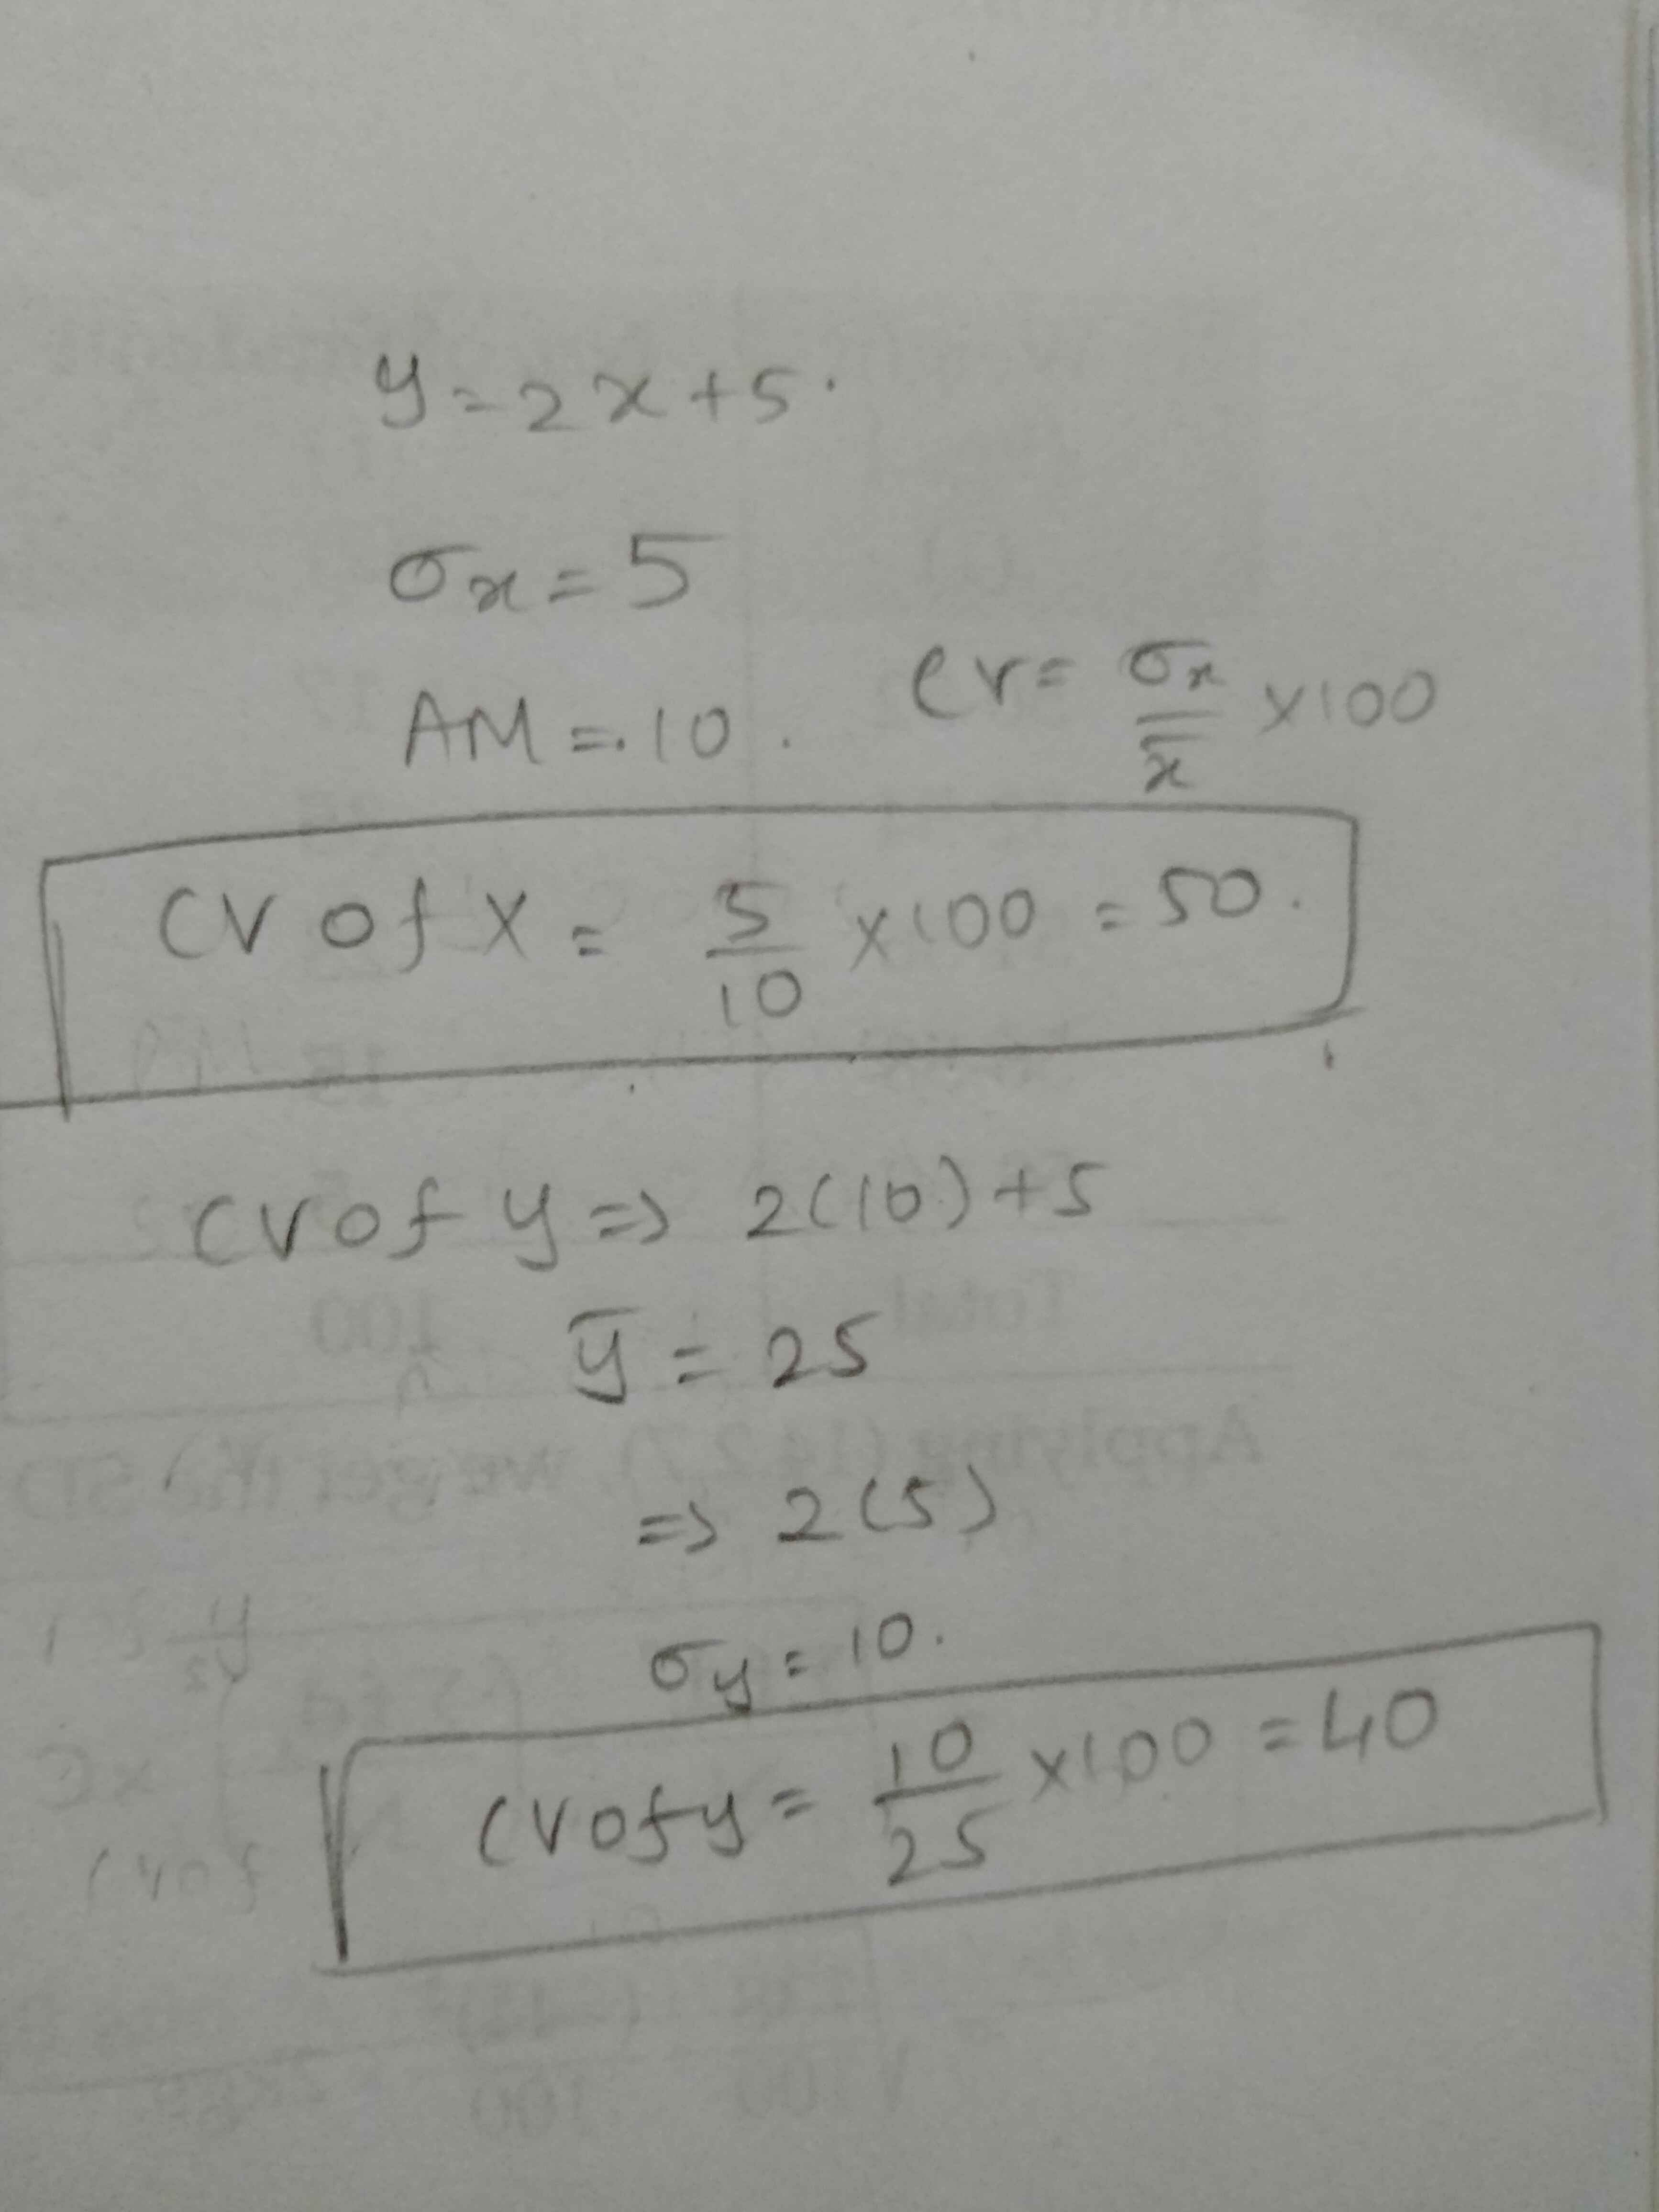 y=2x+5.
σx=5
AM=.10. CV= σx/x̄ x100
CV of X= 5/10 x100 = 50.
CV of y => 2(10)+5
ȳ = 25
=> 2(5)
σy=10.
CV of y= 10/25 x100 =40